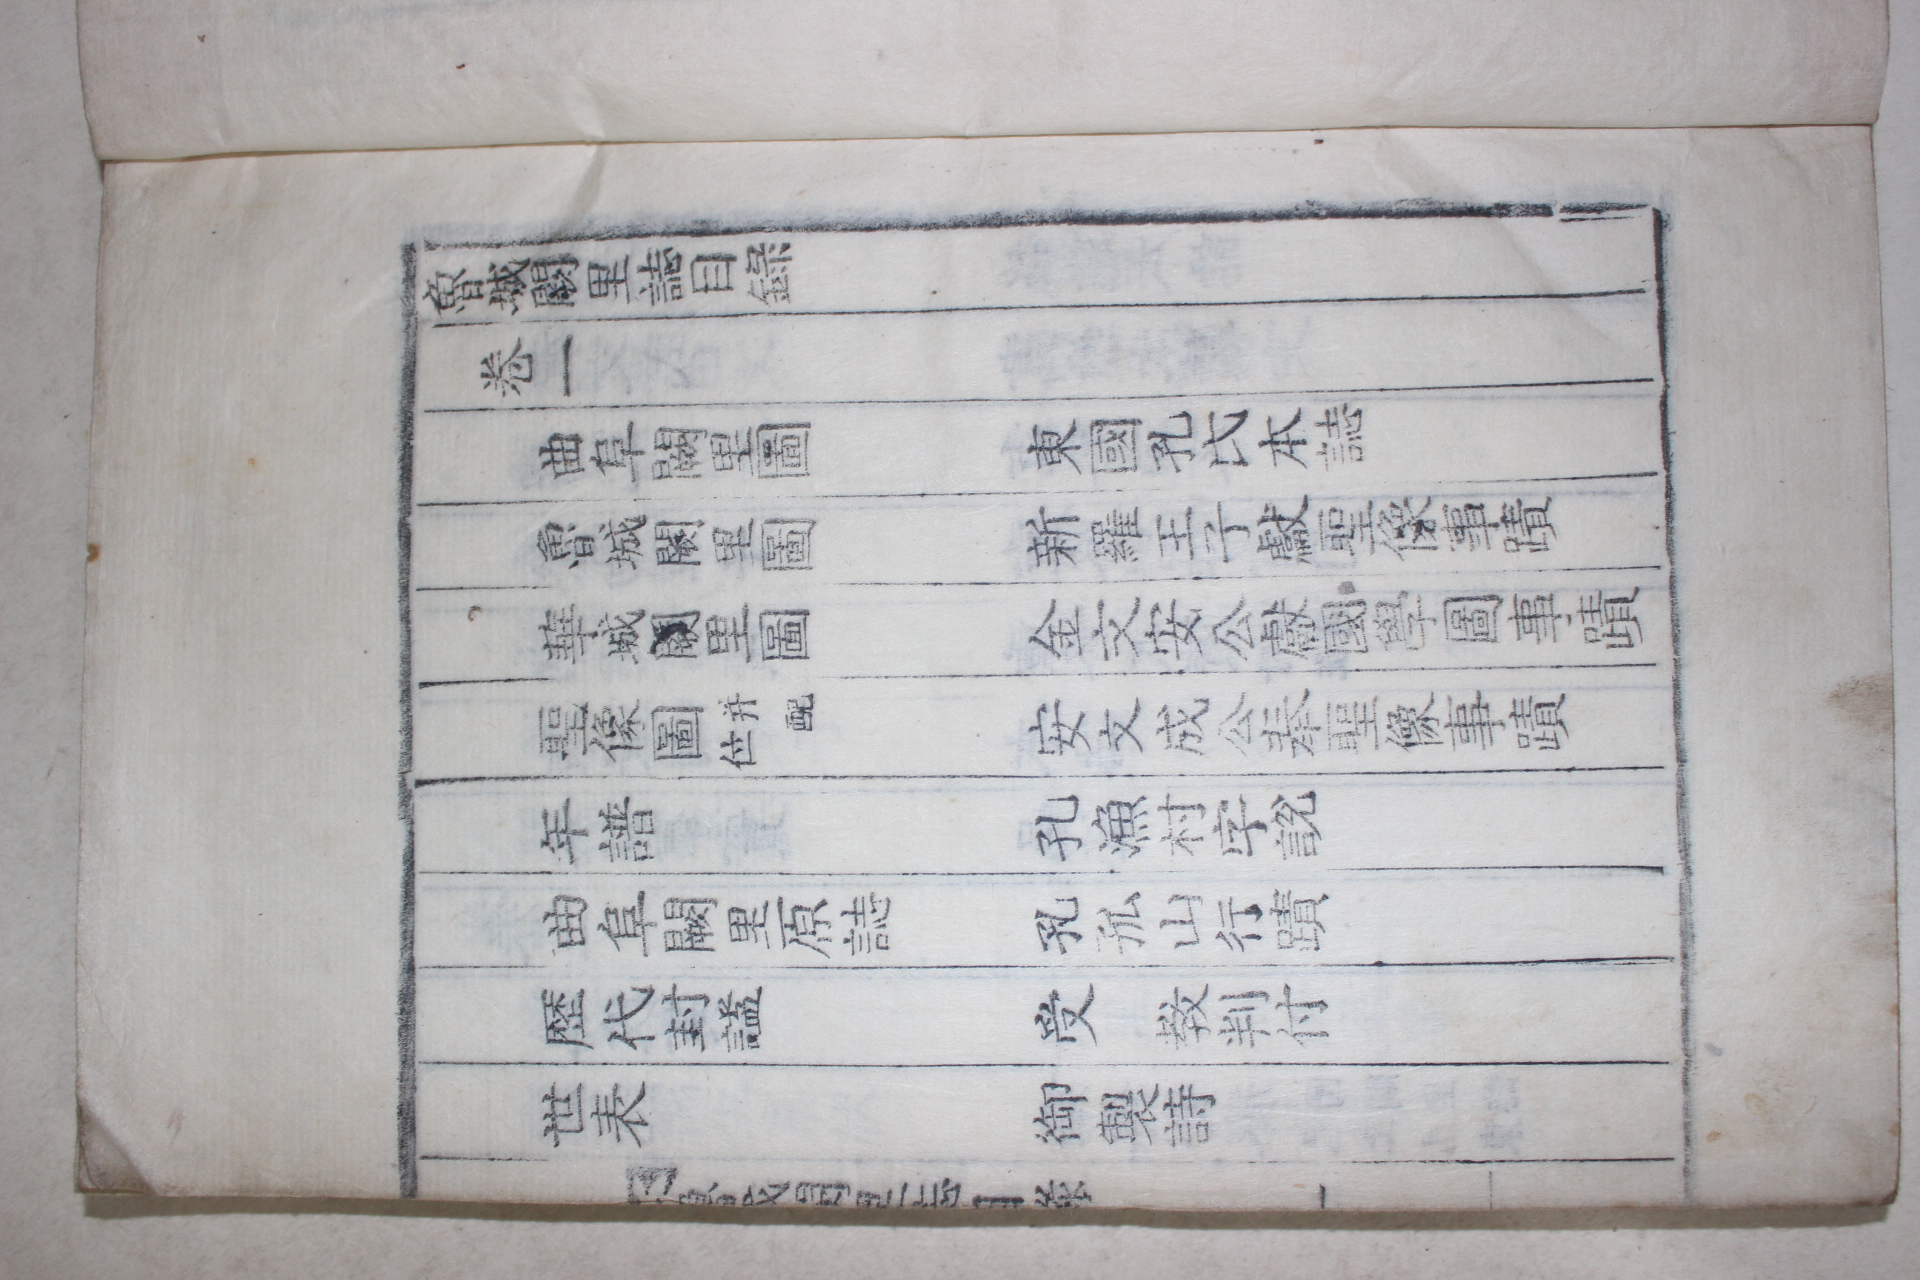 魯城闕里誌目錄
卷一
曲阜闕里圖　東國孔氏本誌
魯城闕里圖　新羅王子獻聖像事蹟
華城闕里圖　金文安公獻國學圖事蹟
聖像圖并配位　安文成公奉聖像事蹟
年譜　孔漁村字說
曲阜闕里原誌　孔孤山行蹟
歷代封諡　受　敎判付
世表　御製詩
魯城闕里誌目錄　一